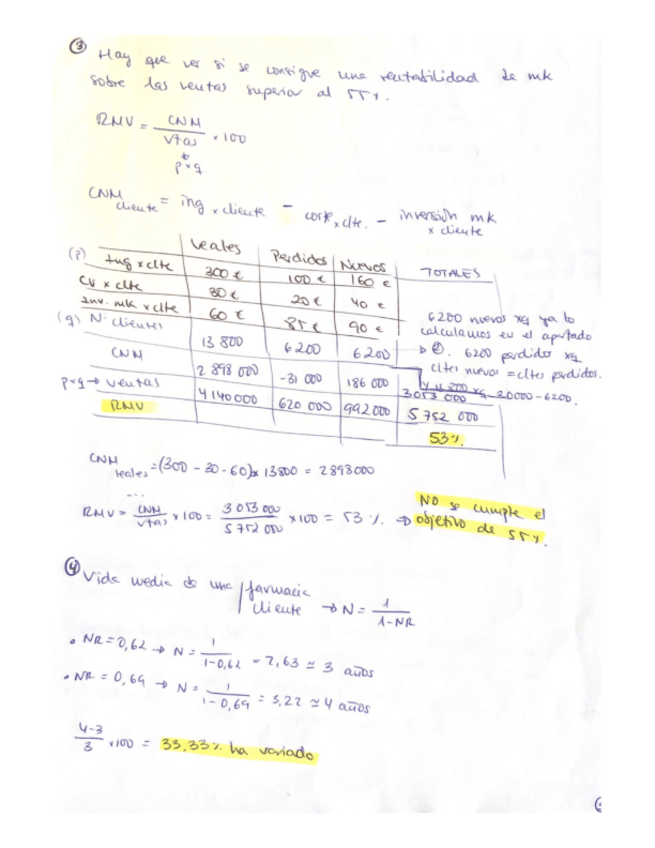 ③ Hay que ver si se consigue una rentabilidad de mk
sobre las ventas superior al 55%.
RMV = CNM / Vtas × 100
p×q
CNM cliente = ing × cliente - coste × clte. - inversión mk × cliente
Leales Perdidos Nuevos TOTALES
(P) Ing x clte 300 € 100 € 160 €
CV x clte 30 € 20 € 40 €
Inv. mk x clte 60 € 85 € 90 €
(q) Nº clientes 13 800 6 200 6 200
CNM 2 898 000 -31 000 186 000 3053 000
p×q → Ventas 4 140 000 620 000 992 000 5 752 000
RMV 53%
6200 nuevos xq ya lo
calculamos en el apartado
②. 6200 perdidos xq
cltes nuevos = cltes perdidos.
y 13.800 xq 20000-6200.
CNM leales = (300 - 30 - 60) x 13800 = 2898000
...
RMV = CNM / Vtas × 100 = 3 053 000 / 5 752 000 × 100 = 53 %. ⇒
NO se cumple el
objetivo de 55%.
④ Vida media de una farmacia
cliente → N = 1 / 1-NR
• NR = 0,62 → N = 1 / 1-0,62 = 2,63 ≃ 3 años
• NR = 0,69 → N = 1 / 1-0,69 = 3,22 ≃ 4 años
4-3 / 3 × 100 = 33,33% ha variado